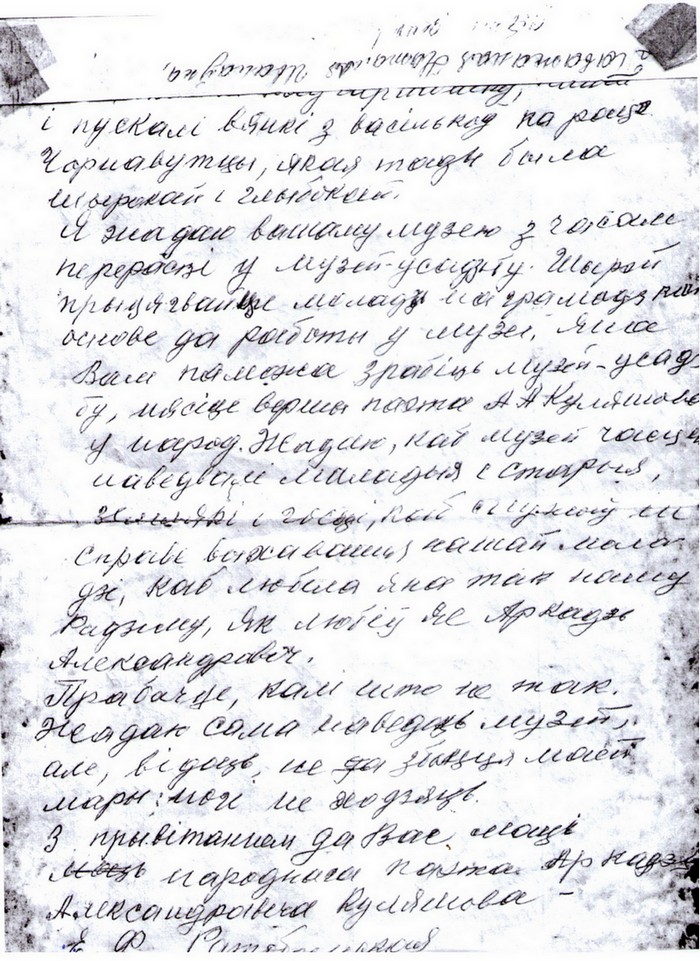 Паважаная Наталля Іванаўна,
і пускалі вянкі з васількоў на рацэ
Чарнавутцы, якая тады была
шырокай і глыбокай.
Я жадаю вашаму музею з часам
перерасці у музей-усадьбу. Шырэй
прыцягвайце моладь на грамадскай
основе да работы у музеі. Яна
Вам паможа зрабіць музей-усадь
бу, нясіце вершы паэта А А Куляшова
у народ. Жадаю, каб музей часцей
наведвалі маладыя і старыя,
землякі і госці, каб служыў ён
справе выхавання нашай мола
дзі, каб любіла яна так нашу
Радзіму, як любіў яе Аркадзь
Александровіч.
Прабачце, калі што не так.
Жадаю сама наведаць музей,
але, відаць, не да збыцця маей
мары: ногі не ходзяць.
З прывітаннем да Вас маці
маць народнага паэта Аркадзя
Александравіча Куляшова –
Е Ф